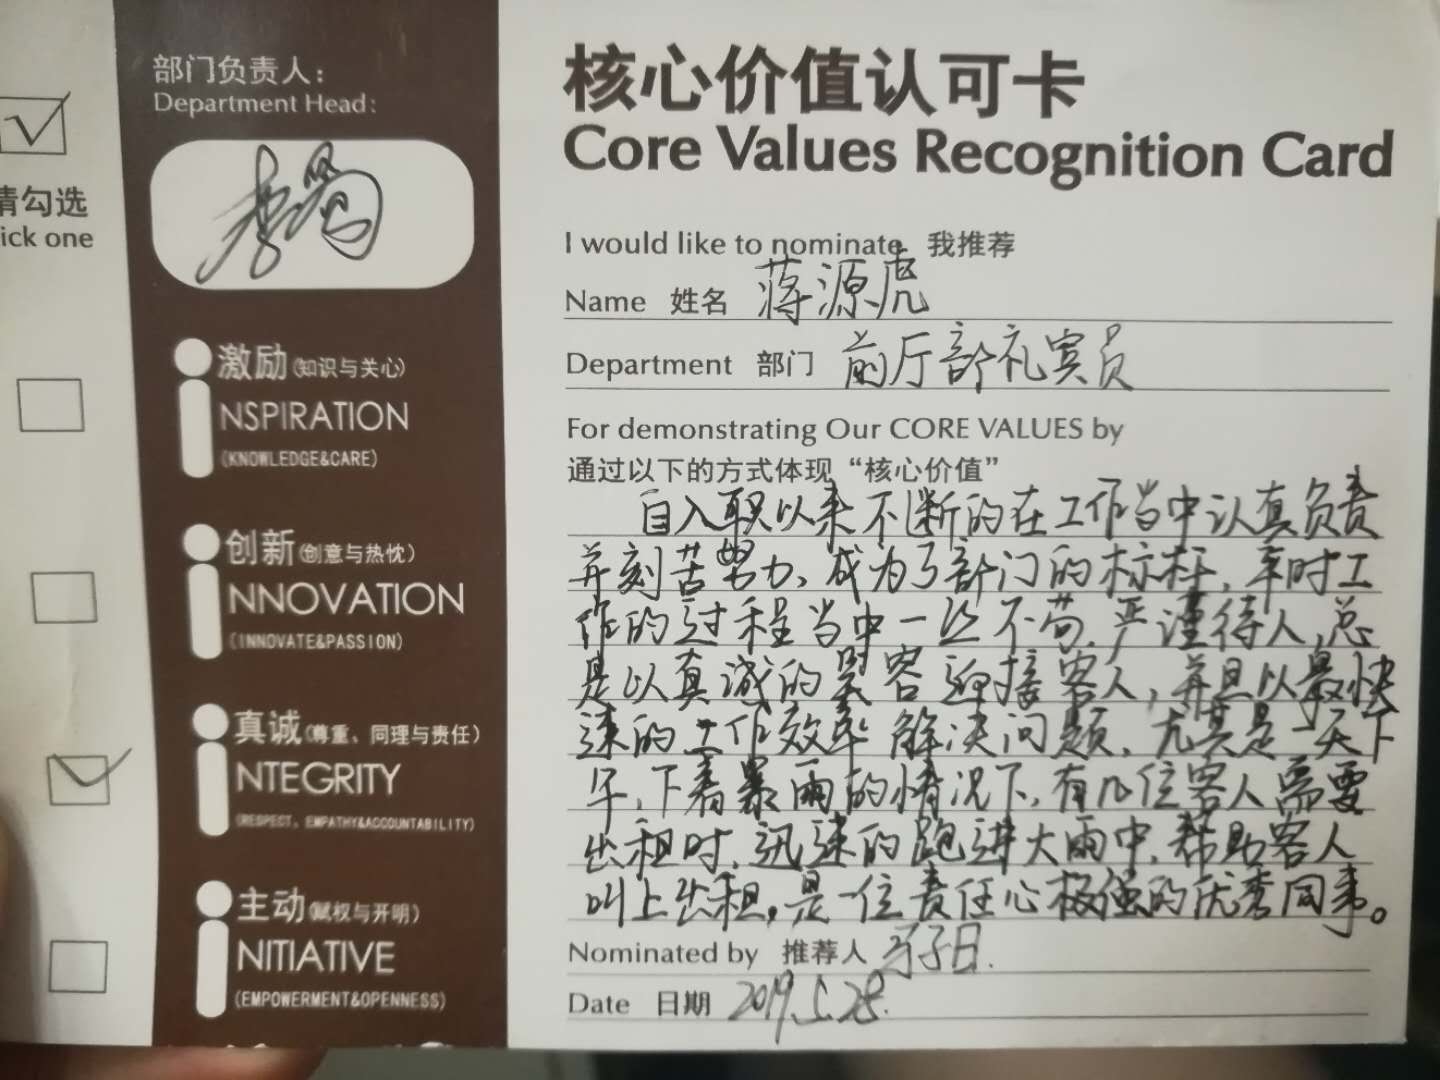 请勾选
ick one
部门负责人:
Department Head:
激励(知识与关心)
INSPIRATION
(KNOWLEDGE&CARE)
创新(创意与热忱)
INNOVATION
(INNOVATE&PASSION)
真诚(尊重、同理与责任)
INTEGRITY
(RESPECT, EMPATHY&ACCOUNTABILITY)
主动(赋权与开明)
INITIATIVE
(EMPOWERMENT&OPENNESS)
核心价值认可卡
Core Values Recognition Card
I would like to nominate 我推荐
Name 姓名 蒋源虎
Department 部门 前厅部礼宾员
For demonstrating Our CORE VALUES by
通过以下的方式体现“核心价值”
自入职以来不断的在工作当中认真负责
并刻苦努力,成为了部门的标杆,平时工
作的过程当中一丝不苟,严谨待人,总
是以真诚的笑容迎接客人,并且以最快
速的工作效率解决问题,尤其是一天下
午,下着暴雨的情况下,有几位客人需要
出租时,迅速的跑进大雨中,帮助客人
叫上出租,是一位责任心极强的优秀同事。
Nominated by 推荐人
Date 日期 2019.5.28.